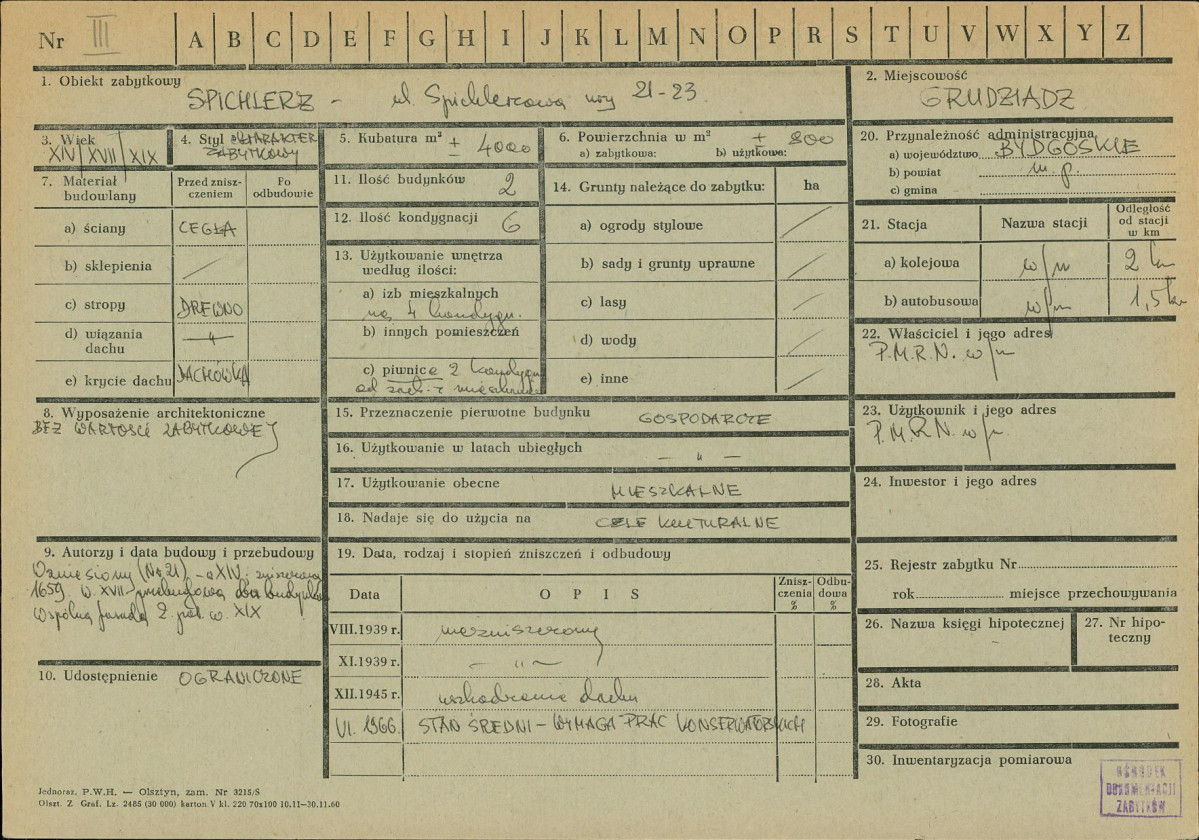 Nr III A B C D E F G H I J K L M N O P R S T U V W X Y Z
1. Obiekt zabytkowy
SPICHLERZ - ul. Spichlerzowa nry 21-23
2. Miejscowość
GRUDZIĄDZ
3. Wiek
XIV/XVII/XIX
4. Styl CHARAKTER
ZABYTKOWY
5. Kubatura m³ ± 4000
6. Powierzchnia w m² ± 800
a) zabytkowa: b) użytkowa:
7. Materiał
budowlany
Przed znisz-
czeniem
Po
odbudowie
a) ściany CEGŁA
b) sklepienia /
c) stropy DREWNO
d) wiązania
dachu — " —
e) krycie dachu DACHÓWKA
8. Wyposażenie architektoniczne
BEZ WARTOŚCI ZABYTKOWEJ
9. Autorzy i data budowy i przebudowy
Wzniesiony (Nr 21) - w XIV; zniszczony
1659 w. XVII - przebudowa dwa budynki
Wspólna fasada 2. poł. w. XIX
10. Udostępnienie OGRANICZONE
11. Ilość budynków 2
12. Ilość kondygnacji 6
13. Użytkowanie wnętrza
według ilości:
a) izb mieszkalnych
na 4 kondygn.
b) innych pomieszczeń
c) piwnice 2 kondygn
od zach.
14. Grunty należące do zabytku: ha
a) ogrody stylowe /
b) sady i grunty uprawne /
c) lasy /
d) wody /
e) inne /
15. Przeznaczenie pierwotne budynku GOSPODARCZE
16. Użytkowanie w latach ubiegłych — " —
17. Użytkowanie obecne MIESZKALNE
18. Nadaje się do użycia na CELE KULTURALNE
19. Data, rodzaj i stopień zniszczeń i odbudowy
Data O P I S Znisz-
czenia
% Odbu-
dowa
%
VIII.1939 r. niezniszczony
XI.1939 r. — " —
XII.1945 r. uszkodzenie dachu
VI. 1966. STAN ŚREDNI - WYMAGA PRAC KONSERWATORSKICH
20. Przynależność administracyjna
a) województwo BYDGOSKIE
b) powiat m. p.
c) gmina
21. Stacja Nazwa stacji Odległość
od stacji
w km
a) kolejowa w/m 2 km
b) autobusowa w/m 1,5 km
22. Właściciel i jego adres
P.M.R.N. w/m
23. Użytkownik i jego adres
P.M.R.N. w/m
24. Inwestor i jego adres
25. Rejestr zabytku Nr
rok miejsce przechowywania
26. Nazwa księgi hipotecznej
27. Nr hipo-
teczny
28. Akta
29. Fotografie
30. Inwentaryzacja pomiarowa
OŚRODEK
DOKUMENTACJI
ZABYTKÓW
Jednoraz. P.W.H. — Olsztyn, zam. Nr 3215/S
Olszt. Z Graf. Lz. 2485 (30 000) karton V kl. 220 70x100 10.11—30.11.60